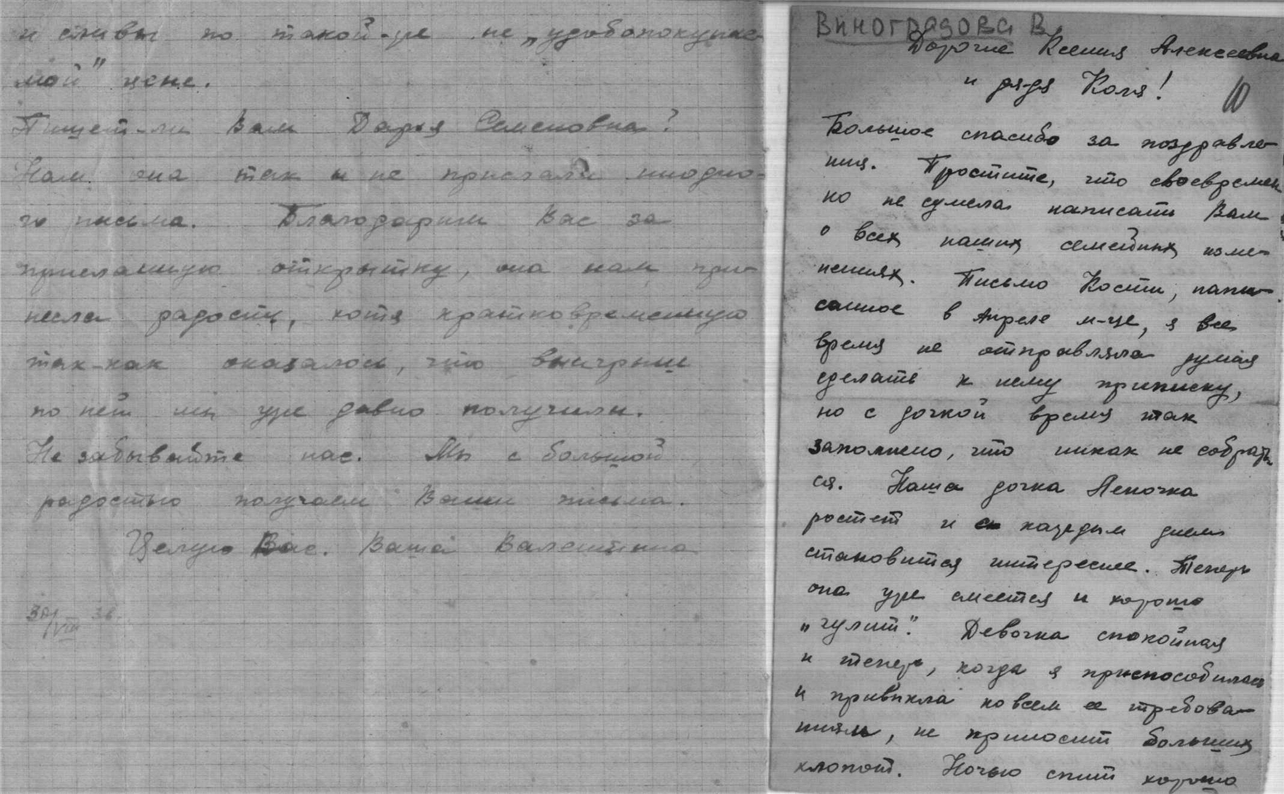 и сливы по такой-же не „удобопокупае-
мой" цене.
Пишет-ли Вам Дарья Семеновна?
Нам она так и не прислала ниодно-
го письма. Благодарим Вас за
присланную открытку, она нам при-
несла радость, хотя кратковременную
так-как оказалось, что выигрыш
по ней мы уже давно получили.
Не забывайте нас. Мы с большой
радостью получаем Ваши письма.
Целую Вас. Ваша Валентина
30/VIII 36.
Виноградова В.
Дорогие Ксения Алексеевна
и дядя Коля!
10
Большое спасибо за поздравле-
ния. Простите, что своевремен
но не сумела написать Вам
о всех наших семейных изме-
нениях. Письмо Кости, напи-
санное в апреле м-це, я все
время не отправляла думая
сделать к нему приписку,
но с дочкой время так
заполнено, что никак не собрать
ся. Наша дочка Леночка
ростет и с каждым днем
становится интереснее. Теперь
она уже смеется и хорошо
„гулит". Девочка спокойная
и теперь, когда я приспособилась
и привыкла ко всем ее требова-
ниям, не приносит больших
хлопот. Ночью спит хорошо